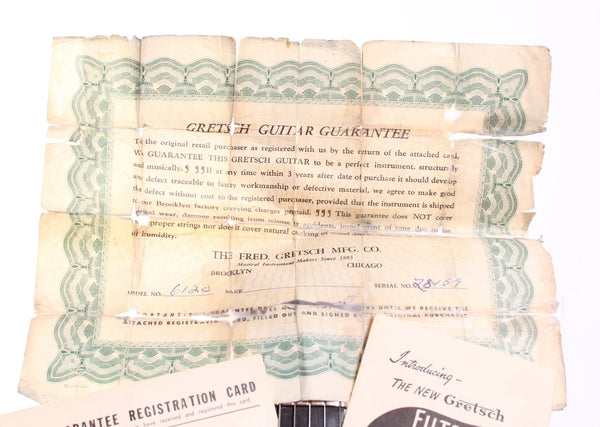 GRETSCH GUITAR GUARANTEE
To the original retail purchaser as registered with us by the return of the attached card.
We GUARANTEE THIS GRETSCH GUITAR to be a perfect instrument, structurally
and musically. § §§If at any time within 3 years after date of purchase it should develop
any defect traceable to faulty workmanship or defective material, we agree to make good
the defect without cost to the registered purchaser, provided that the instrument is shipped
to our Brooklyn factory carrying charges prepaid. §§§ This guarantee does NOT cover
wear, damage resulting from accidents, impairment of tone due to use
improper strings nor does it cover natural checking of
or humidity.
THE FRED. GRETSCH MFG. CO.
Musical Instrument Makers Since 1883
BROOKLYN CHICAGO
MODEL NO. 6120 SERIAL NO. 28407
GUARANTEE DOES UNTIL WE RECEIVE THE
ATTACHED REGISTRATION CARD, FILLED OUT AND SIGNED BY ORIGINAL PURCHASER
GUARANTEE REGISTRATION CARD
have received and registered this card.
Introducing-
THE NEW Gretsch